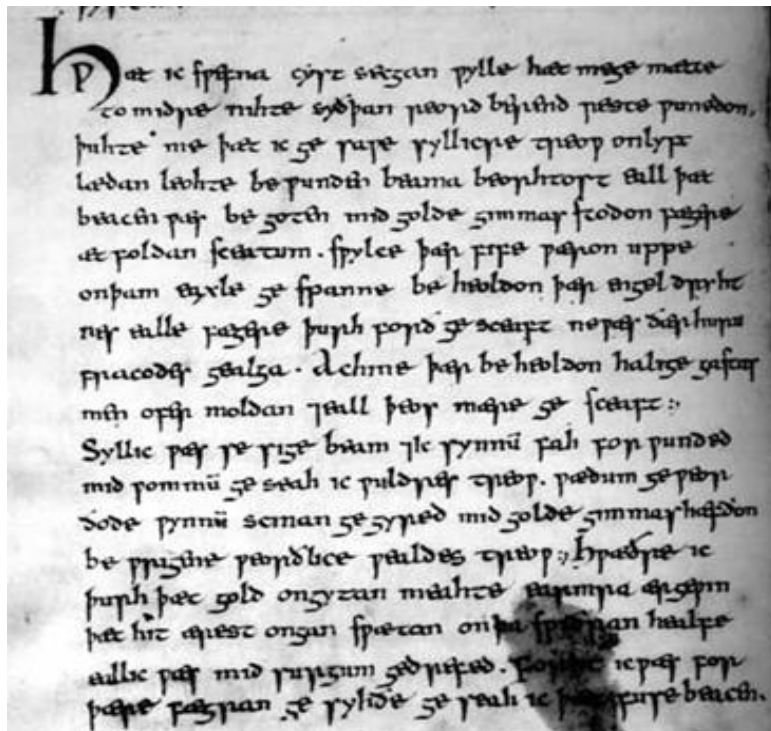 Hƿæt ic sƿefna cyst secgan ƿylle hæt mege mætte
to midre nihte syðþan reord berend reste ƿunedon.
þuhte me þæt ic ge saƿe syllicre treoƿ onlyft
lædan leohte be ƿunden beama beorhtost eall þæt
beacen ƿæs be goten mid golde gimmas stodon fægere
æt foldan sceatum. sƿylce þær fife ƿæron uppe
onþam eaxle ge spanne be heoldon þær engel dryht
nes ealle fægere þurh forð ge sceaft neƿæs ðær huru
fracodes gealga. Achme þær be heoldon halige gastas
men ofer moldan ⁊eall þeos mære ge sceaft:,
Syllic ƿæs se sige beam ⁊ic synnū fah for ƿunded
mid ƿommū ge seah ic ƿuldres treoƿ. ƿædum geƿeor
ðode ƿynnū scinan ge gyred mid golde gimmas hæfdon
be ƿrigene ƿeorðlice ƿealdes treoƿ:, hƿæðre ic
þurh þæt gold ongytan meahte earmra ærgeƿin
þæt hit ærest ongan sƿætan on þa sƿiðran healfe
eallic ƿæs mid surgum gedrefed. forht ic ƿæs for
þære fægran ge syhðe ge seah ic þæt fuse beacen.